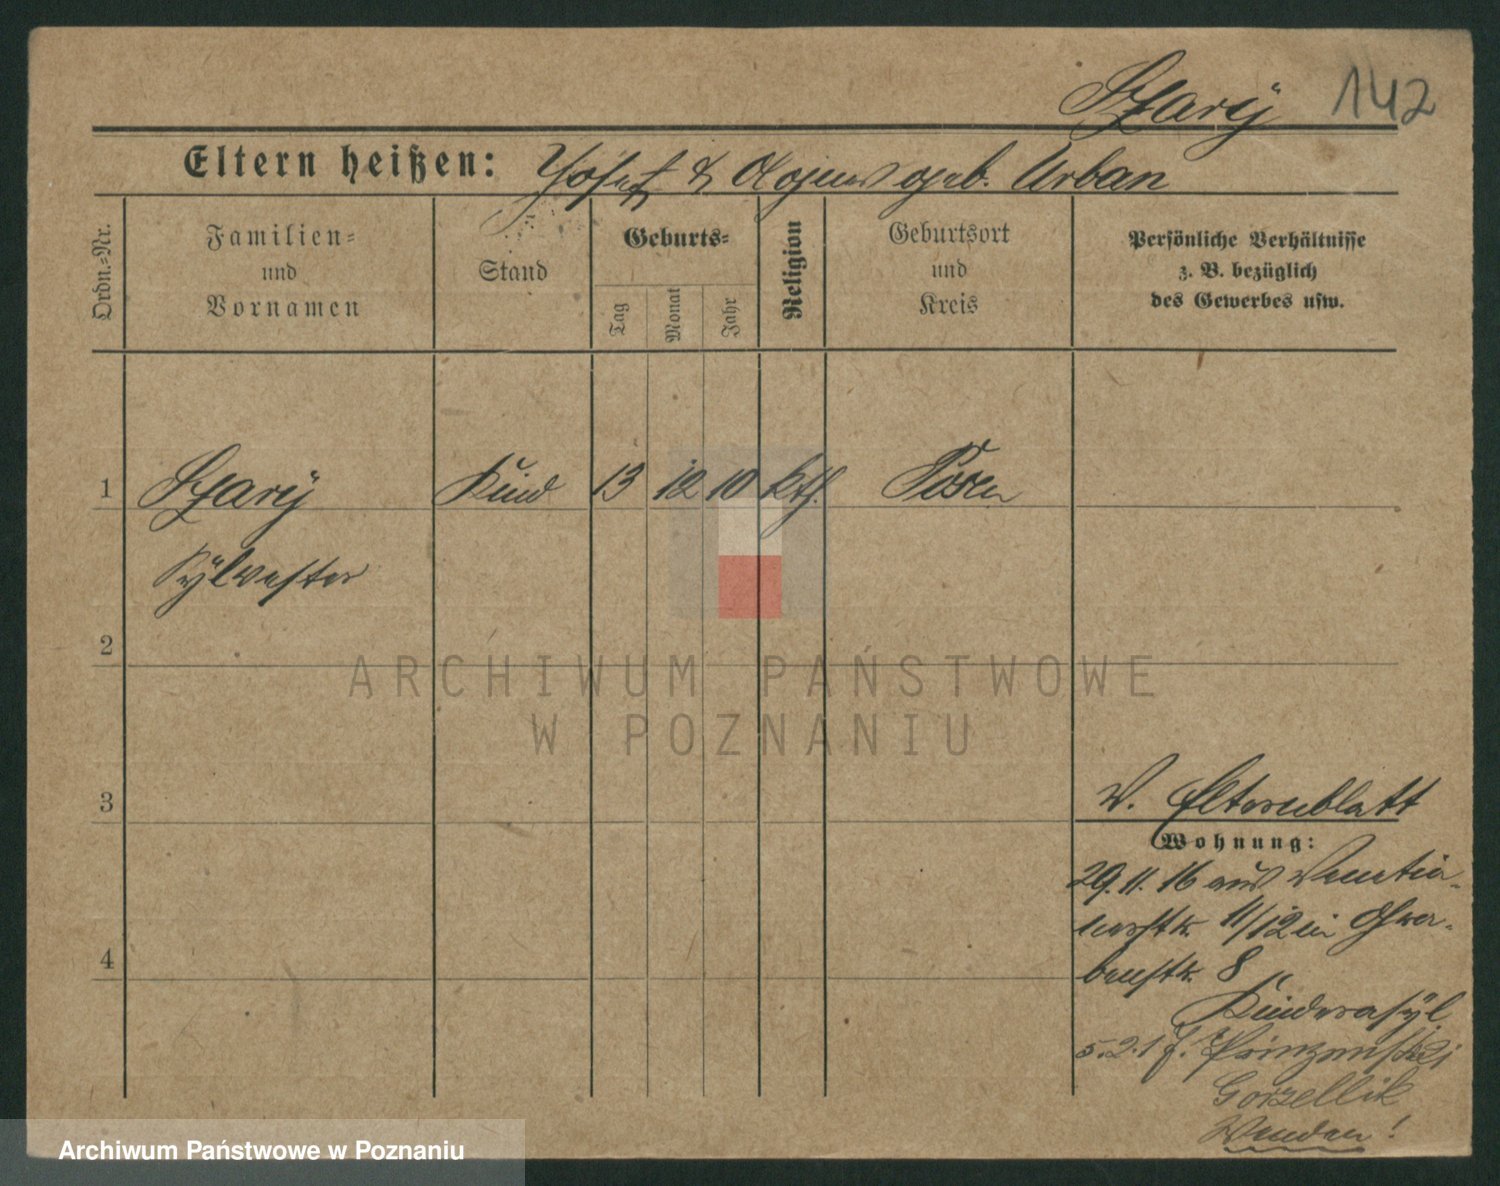 Szarÿ 142
Eltern heißen: Josef & Agnes geb. Urban
Ordn.=Nr.
Familien=
und
Vornamen
Stand
Geburts=
Tag
Monat
Jahr
Religion
Geburtsort
und
Kreis
Persönliche Verhältnisse
z. B. bezüglich
des Gewerbes usw.
1 Szarÿ Kind 13 12 10 kth. Posen
Sÿlvester
2
ARCHIWUM PAŃSTWOWE
W POZNANIU
3
V. Elternblatt
Wohnung:
29.11.16 aus Venetia-
nerstr. 11/12 in
4
8
Kinderasÿl
5.2.17. Prinzenstr. 21
Gorzellik
Wenden!
Archiwum Państwowe w Poznaniu